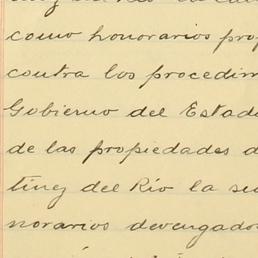 como honorarios pro
contra los procedim
Gobierno del Estad
de las propiedades d
tinez del Rio la su
norarios devengado